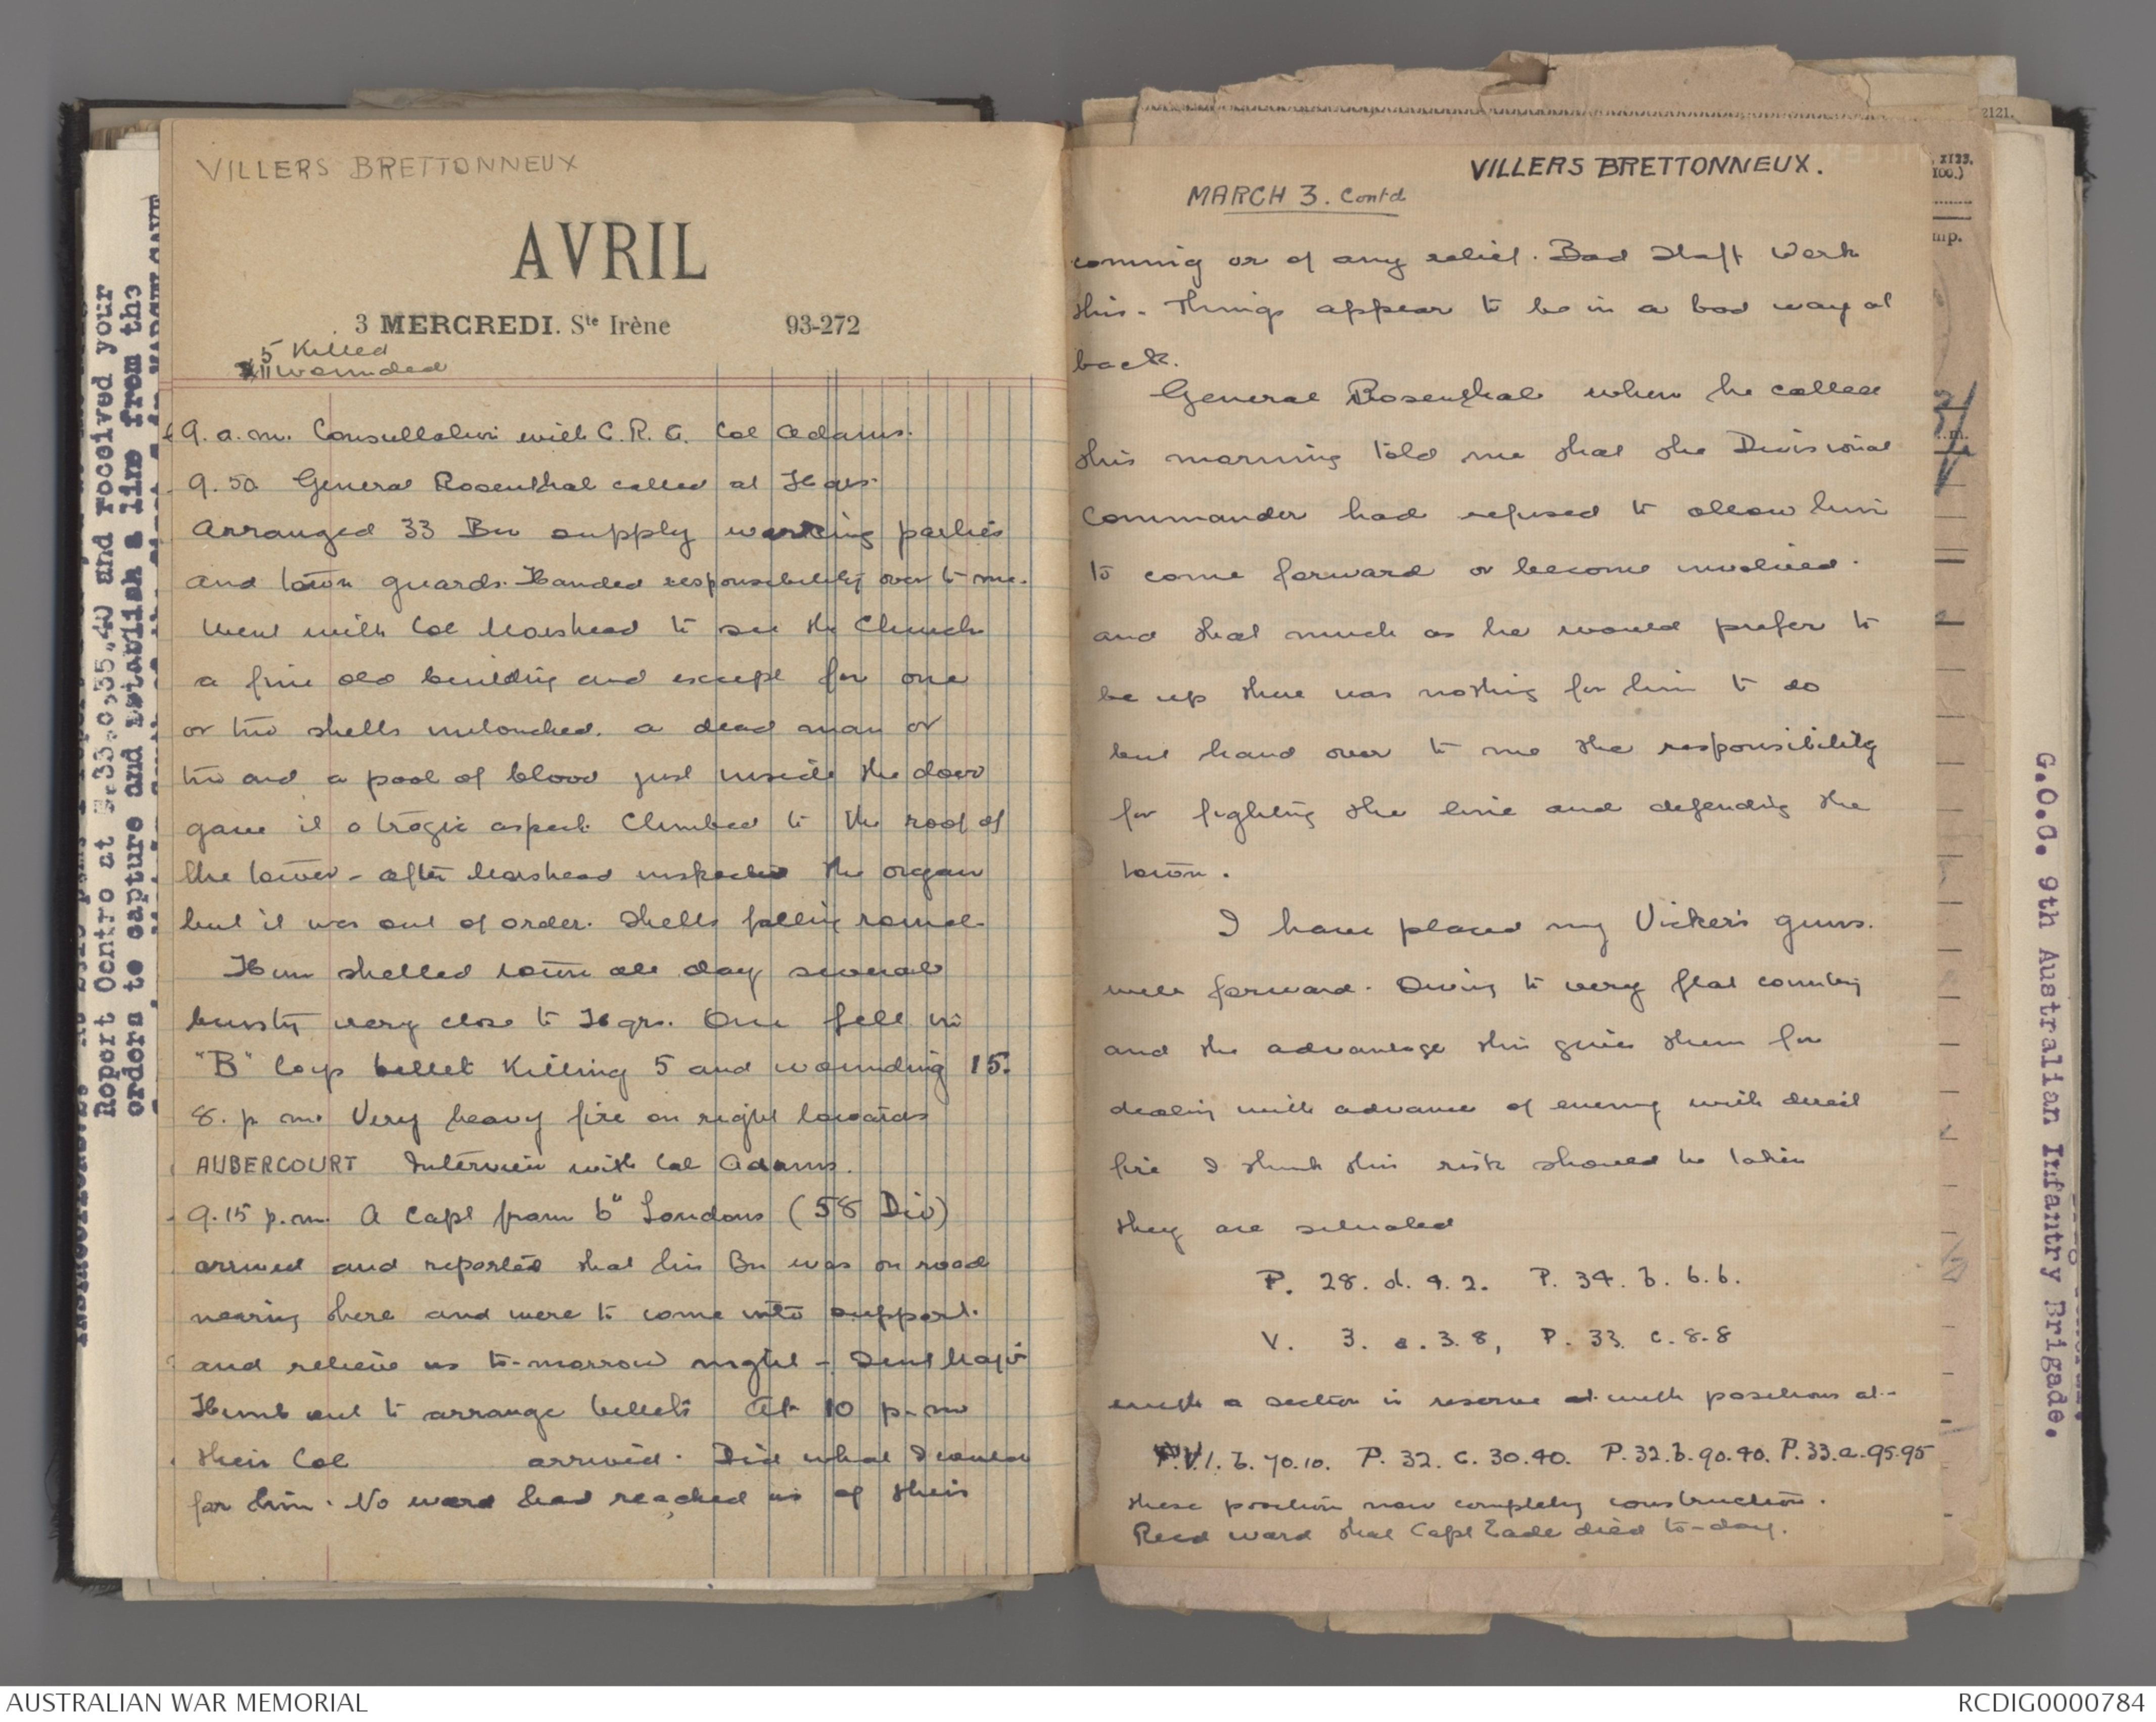 VILLERS BRETTONNEUX
AVRIL
3 MERCREDI. Ste Irène 93-272
5 Killed
11 wounded
9. a.m. Consultation with C.R.A. Col Adams.
9.50 General Rosenthal called at Hqrs.
Arranged 33 Bn supply working parties
and town guards. Handed responsibility over to me.
Went with Col Morshead to see the Church
a fine old building and except for one
or two shells untouched. a dead man or
two and a pool of blood just inside the door
gave it a tragic aspect. Climbed to the roof of
the tower - after Morshead inspected the organ
but it was out of order. Shells falling round.
Hun shelled town all day several
bursts very close to Hqrs. One fell in
"B" Coys billet Killing 5 and wounding 15.
8. p m. Very heavy fire on right towards
AUBERCOURT Interview with Col Adams.
9.15 p.m. A Capt from 6" Londons (58 Div)
arrived and reported that his Bn was on road
nearing there and were to come into support.
and relieve us to-morrow night - Sent Major
out to arrange billets At 10 p.m
their Col arrived. Did what I could
for him. No word had reached us of their
VILLERS BRETTONNEUX.
MARCH 3. Contd
coming or of any relief. Bad Staff Work
this - Things appear to be in a bad way at
back.
General Rosenthal when he called
this morning told me that the Divisional
Commander had refused to allow him
to come forward or become involved.
and that much as he would prefer to
be up there was nothing for him to do
but hand over to me the responsibility
for fighting the line and defending the
town.
I have placed my Vickers guns.
well forward. Owing to very flat country
and the advantage this gives them for
dealing with advance of enemy with direct
fire I think this risk should be taken
they are situated
P. 28. d. 4. 2. P. 34. b. 6. 6.
V. 3. a. 3. 8, P. 33. c. 8. 8
with a section in reserve with positions at -
V.1. b. 70.10. P. 32. c. 30.40. P. 32. b. 90.40. P. 33. a. 95.95
these position now completely construction.
Recd word that Capt died to-day.
Report Centre at and received your
orders to capture and establish a line from the
G.O.C. 9th Australian Infantry Brigade.
2121.
AUSTRALIAN WAR MEMORIAL
RCDIG0000784